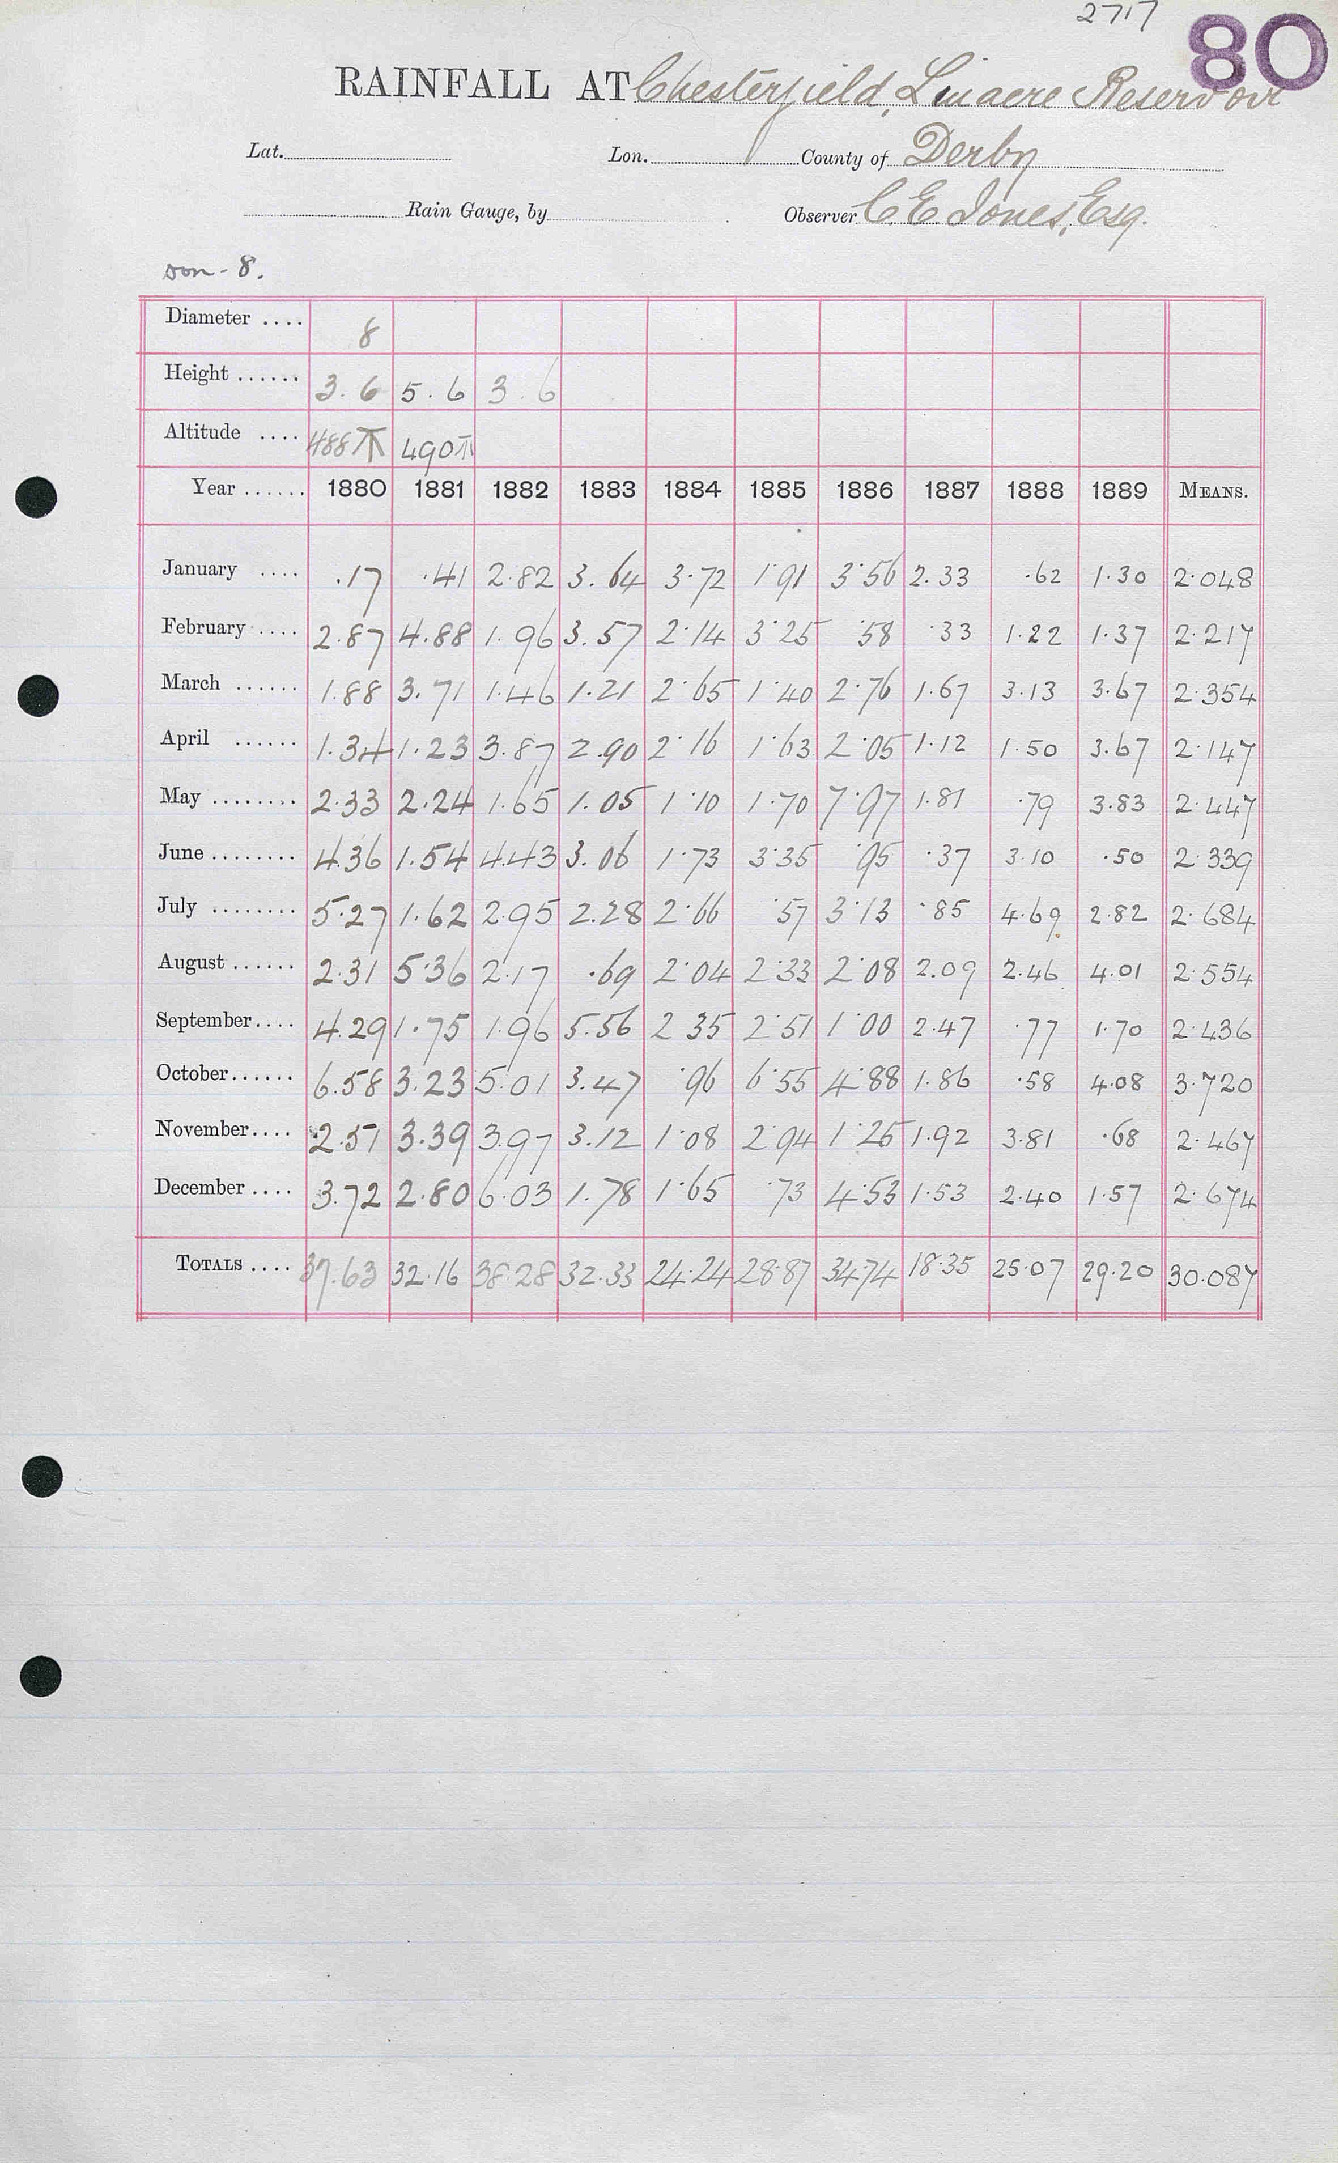 2717
80
RAINFALL AT Chesterfield, Linacre Reservoir
Lat. Lon. County of Derby
Rain Gauge, by Observer C E Jones, Esq.
Don - 8.
Diameter .... 8
Height ...... 3.6 5.6 3.6
Altitude .... 488 490
Year ...... 1880 1881 1882 1883 1884 1885 1886 1887 1888 1889 MEANS.
January .... .17 .41 2.82 3.64 3.72 1.91 3.56 2.33 .62 1.30 2.048
February .... 2.87 4.88 1.96 3.57 2.14 3.25 .58 .33 1.22 1.37 2.217
March ...... 1.88 3.71 1.46 1.21 2.65 1.40 2.76 1.67 3.13 3.67 2.354
April ...... 1.34 1.23 3.87 2.90 2.16 1.63 2.05 1.12 1.50 3.67 2.147
May ........ 2.33 2.24 1.65 1.05 1.10 1.70 7.97 1.81 .79 3.83 2.447
June ........ 4.36 1.54 4.43 3.06 1.73 3.35 .95 .37 3.10 .50 2.339
July ........ 5.27 1.62 2.95 2.28 2.66 .57 3.13 .85 4.69 2.82 2.684
August ...... 2.31 5.36 2.17 .69 2.04 2.33 2.08 2.09 2.46 4.01 2.554
September.... 4.29 1.75 1.96 5.56 2.35 2.51 1.00 2.47 .77 1.70 2.436
October...... 6.58 3.23 5.01 3.47 .96 6.55 4.88 1.86 .58 4.08 3.720
November.... 2.51 3.39 3.97 3.12 1.08 2.94 1.25 1.92 3.81 .68 2.467
December .... 3.72 2.80 6.03 1.78 1.65 .73 4.53 1.53 2.40 1.57 2.674
TOTALS .... 37.63 32.16 38.28 32.33 24.24 28.87 34.74 18.35 25.07 29.20 30.087